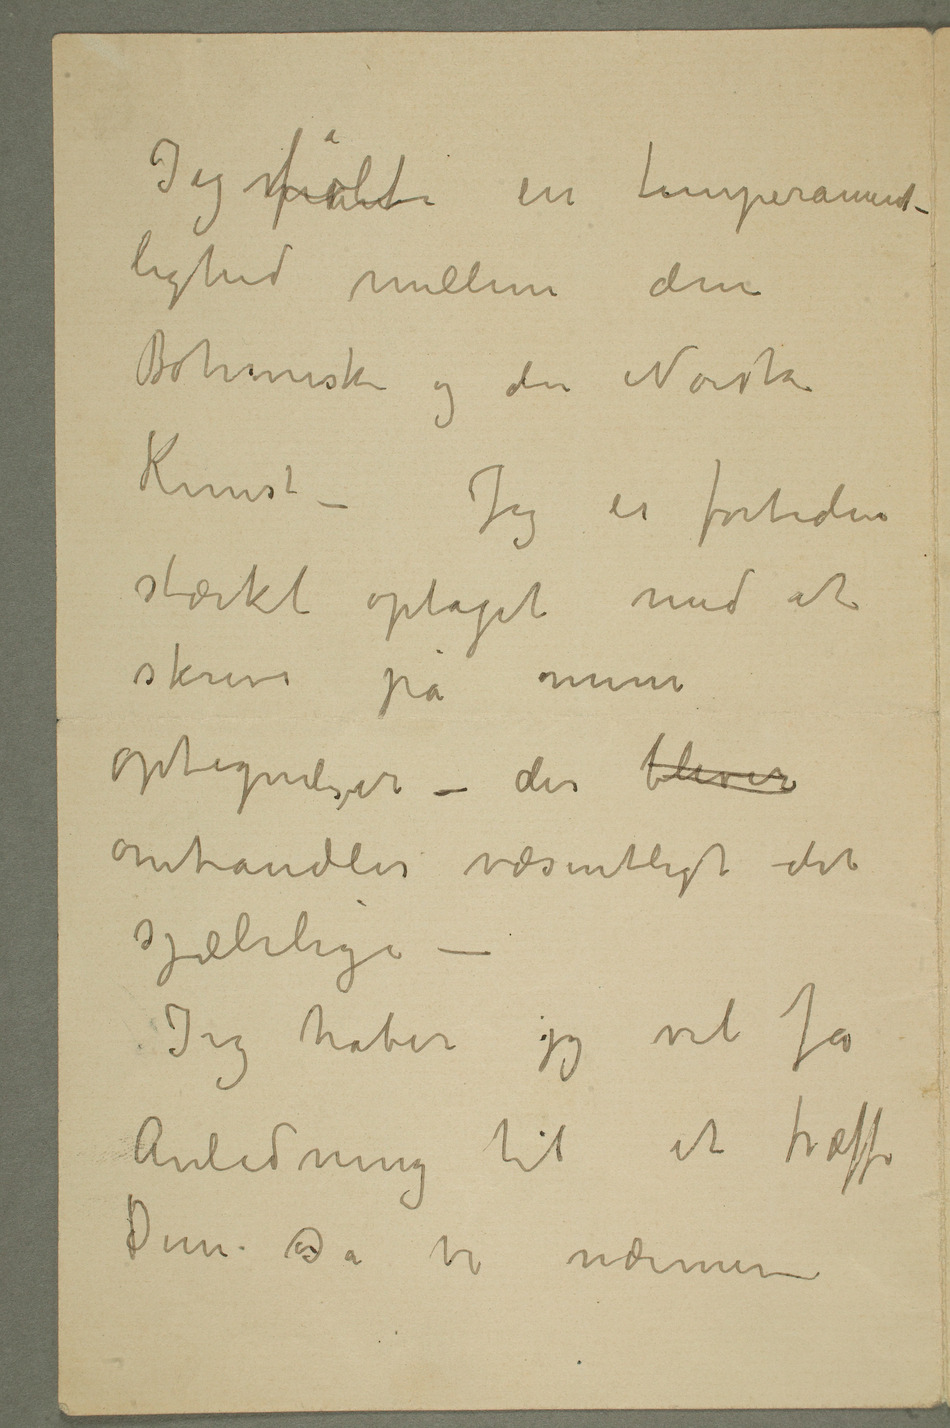 Jeg følte en temperament-
lighed mellem den
Bøhmiske og den Norske
Kunst – Jeg er fortiden
stærkt optaget med at
skrive på mine
optegnelser – der bliver
omhandler væsentligt det
sjælelige –
Jeg haber jeg vil få
Anledning til at træffe
Dem. Da vi nærmere